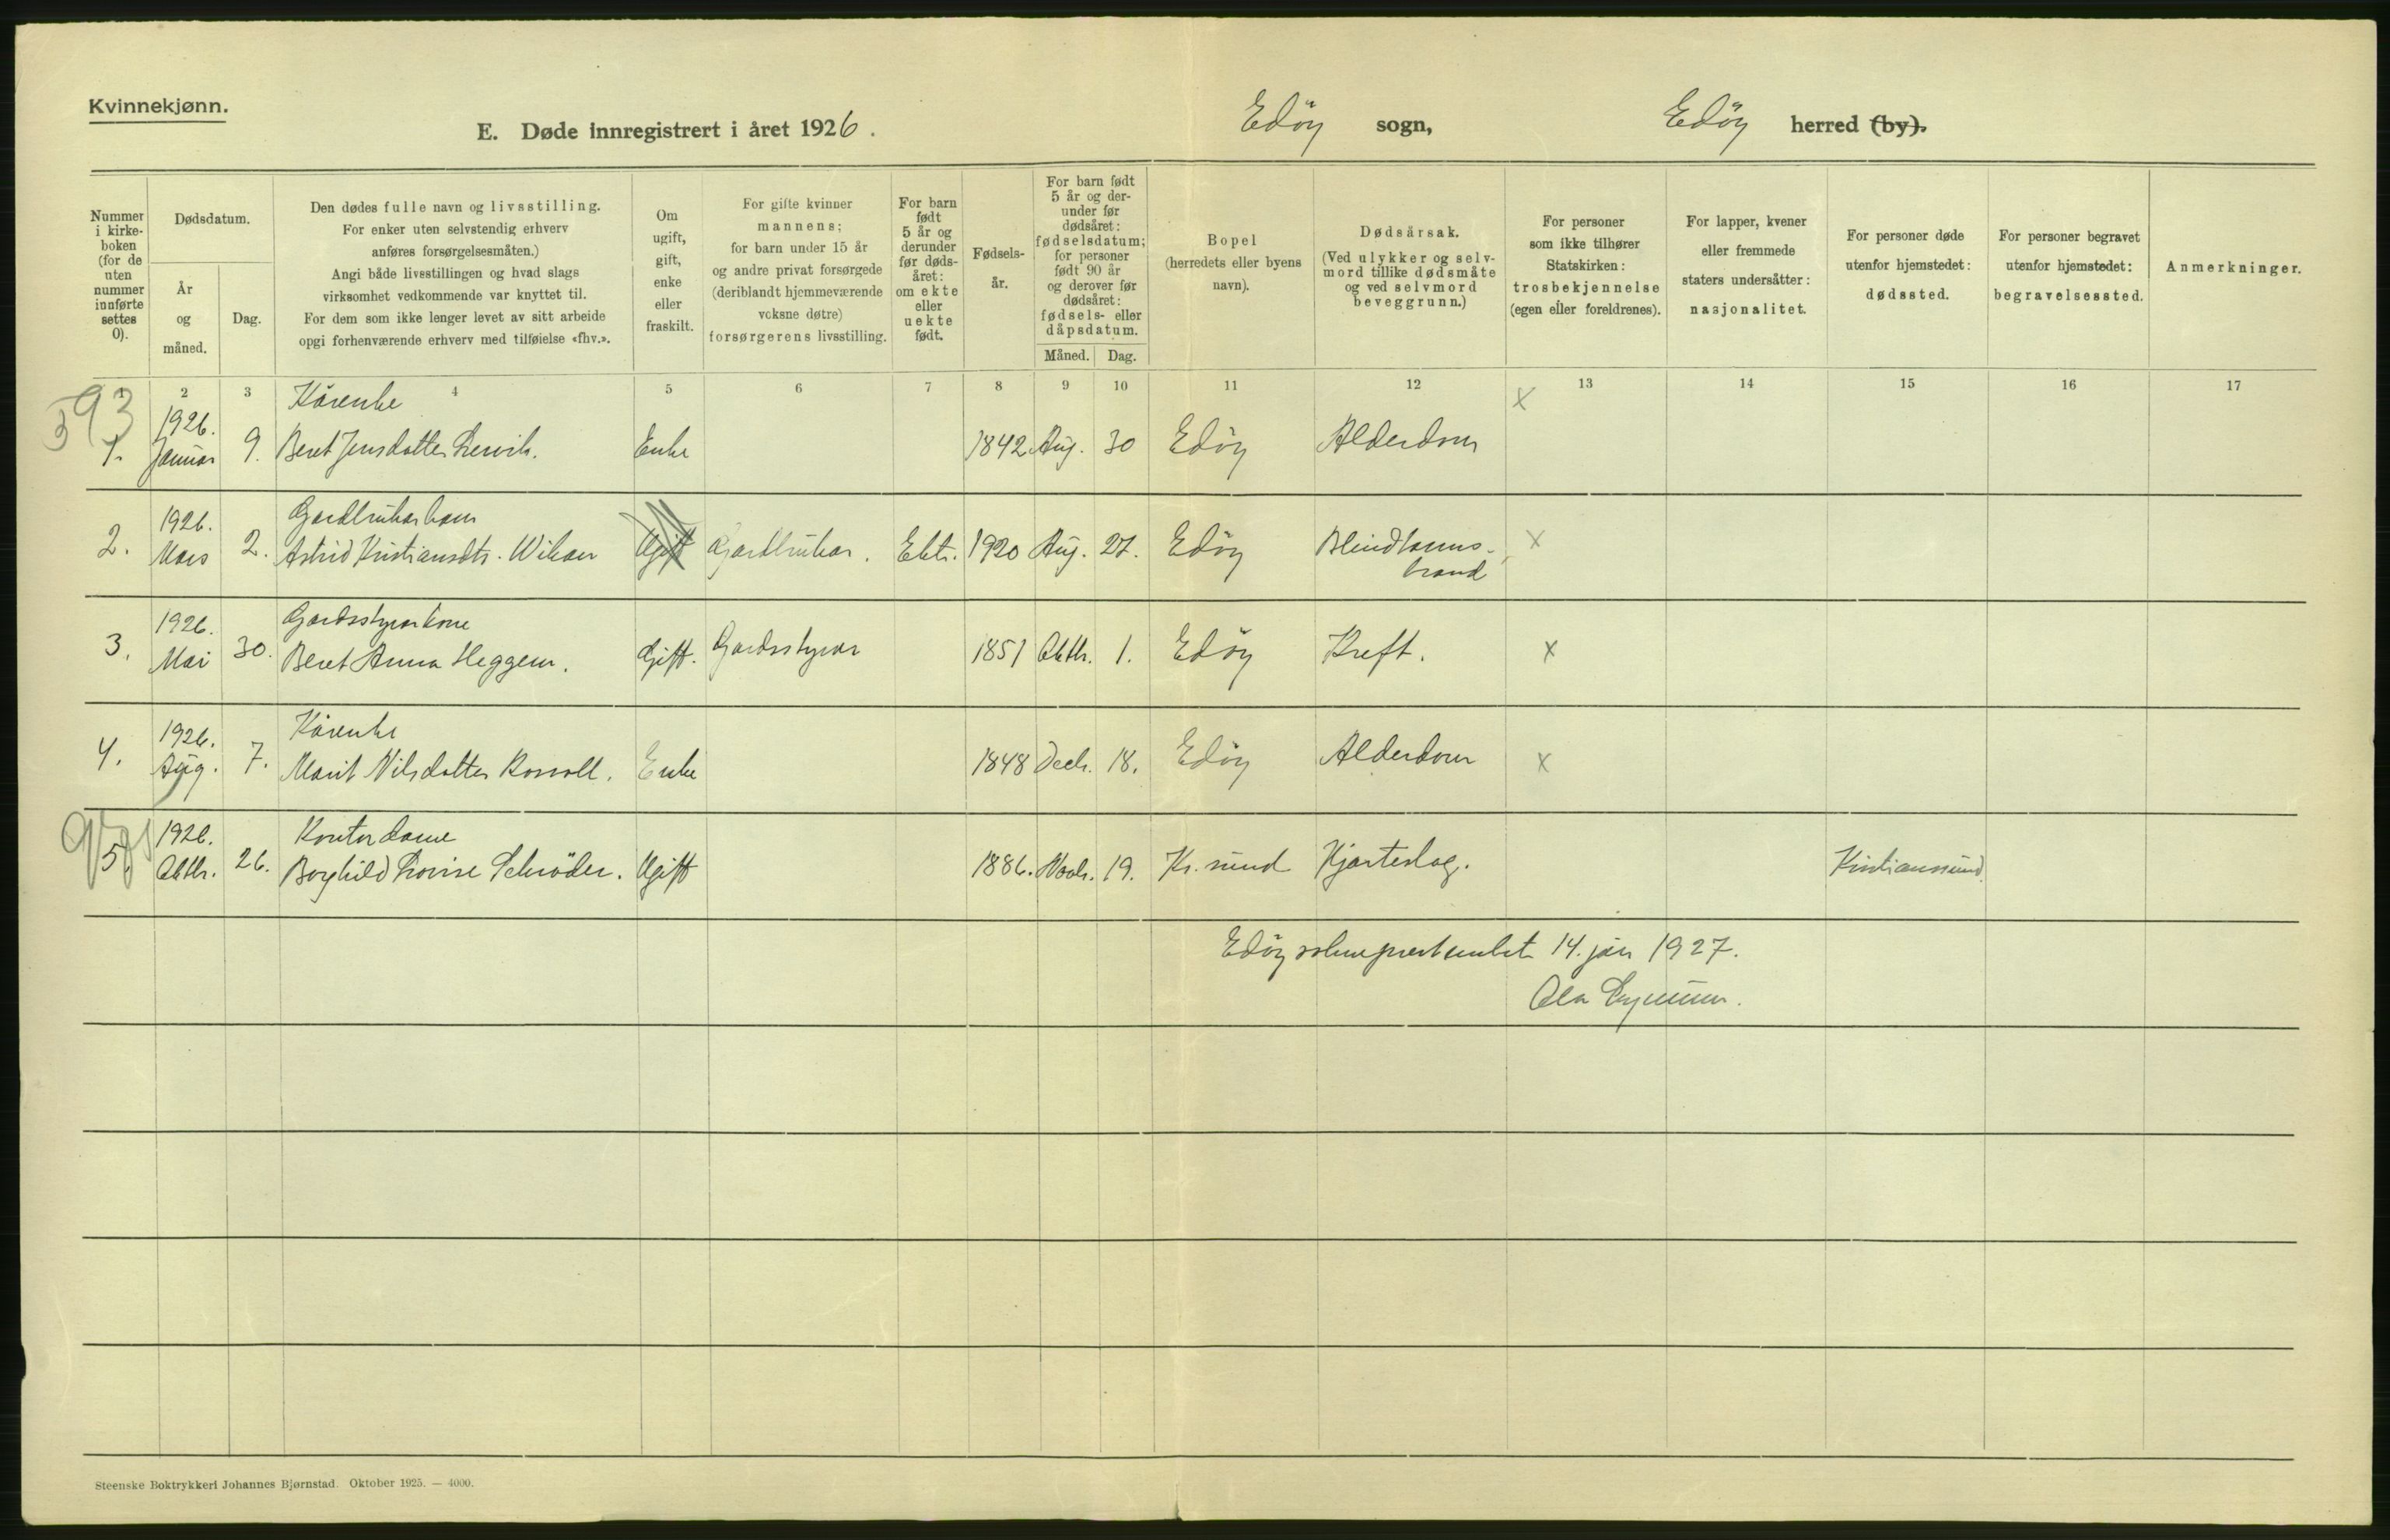 Kvinnekjønn.
E. Døde innregistrert i året 1926.
Edöy sogn,
Edöy herred (by).
Nummer i kirke-boken (for de uten nummer innførte settes 0).
Dødsdatum.
År og måned.
Dag.
Den dødes fulle navn og livsstilling.
For enker uten selvstendig erhverv
anføres forsørgelsesmåten.)
Angi både livsstillingen og hvad slags
virksomhet vedkommende var knyttet til.
For dem som ikke lenger levet av sitt arbeide
opgi forhenværende erhverv med tilføielse «fhv.».
Om ugift, gift, enke eller fraskilt.
For gifte kvinner
mannens;
for barn under 15 år
og andre privat forsørgede
(deriblandt hjemmeværende
voksne døtre)
forsørgerens livsstilling.
For barn født 5 år og derunder før døds-året: om ekte eller uekte født.
Fødsels-år.
For barn født
5 år og der-
under før
dødsåret:
fødselsdatum;
for personer
født 90 år
og derover før
dødsåret:
fødsels- eller
dåpsdatum.
Måned. Dag.
Bopel
(herredets eller byens
navn).
Dødsårsak.
(Ved ulykker og selv-
mord tillike dødsmåte
og ved selvmord
beveggrunn.)
For personer
som ikke tilhører
Statskirken:
trosbekjennelse
(egen eller foreldrenes).
For lapper, kvener
eller fremmede
staters undersåtter:
nasjonalitet.
For personer døde
utenfor hjemstedet:
dødssted.
For personer begravet
utenfor hjemstedet:
begravelsessted.
Anmerkninger.
2 3 4 5 6 7 8 9 10 11 12 13 14 15 16 17
593
Kårenke
1. 1926. Januar 9. Beret Jensdatter Lervik. Enke 1842 Aug. 30 Edöy Alderdom x
Gardbrukarbarn
2. 1926. Mars 2. Astrid Kristiansdtr. Wikan Ugift Gardbrukar. Ekte. 1920 Aug. 27. Edöy Blindtarms-
brand x
Gardsstyrarkone
3. 1926. Mai 30. Beret Anna Heggem. Gift. Gardsstyrar 1851 Oktbr. 1. Edöy Kreft. x
Kårenke
4. 1926. Aug. 7. Marit Nilsdatter Rosvoll. Enke 1848 Decbr. 18. Edöy Alderdom x
Kontordame
5. 1926. Oktbr. 26. Borghild Lovise Schröder. Ugift 1886. Novbr. 19. Kr.sund Hjarteslag. Kristianssund.
Edöy sokneprestembet 14. jan 1927.
Ola
Steenske Boktrykkeri Johannes Bjørnstad. Oktober 1925. — 4000.